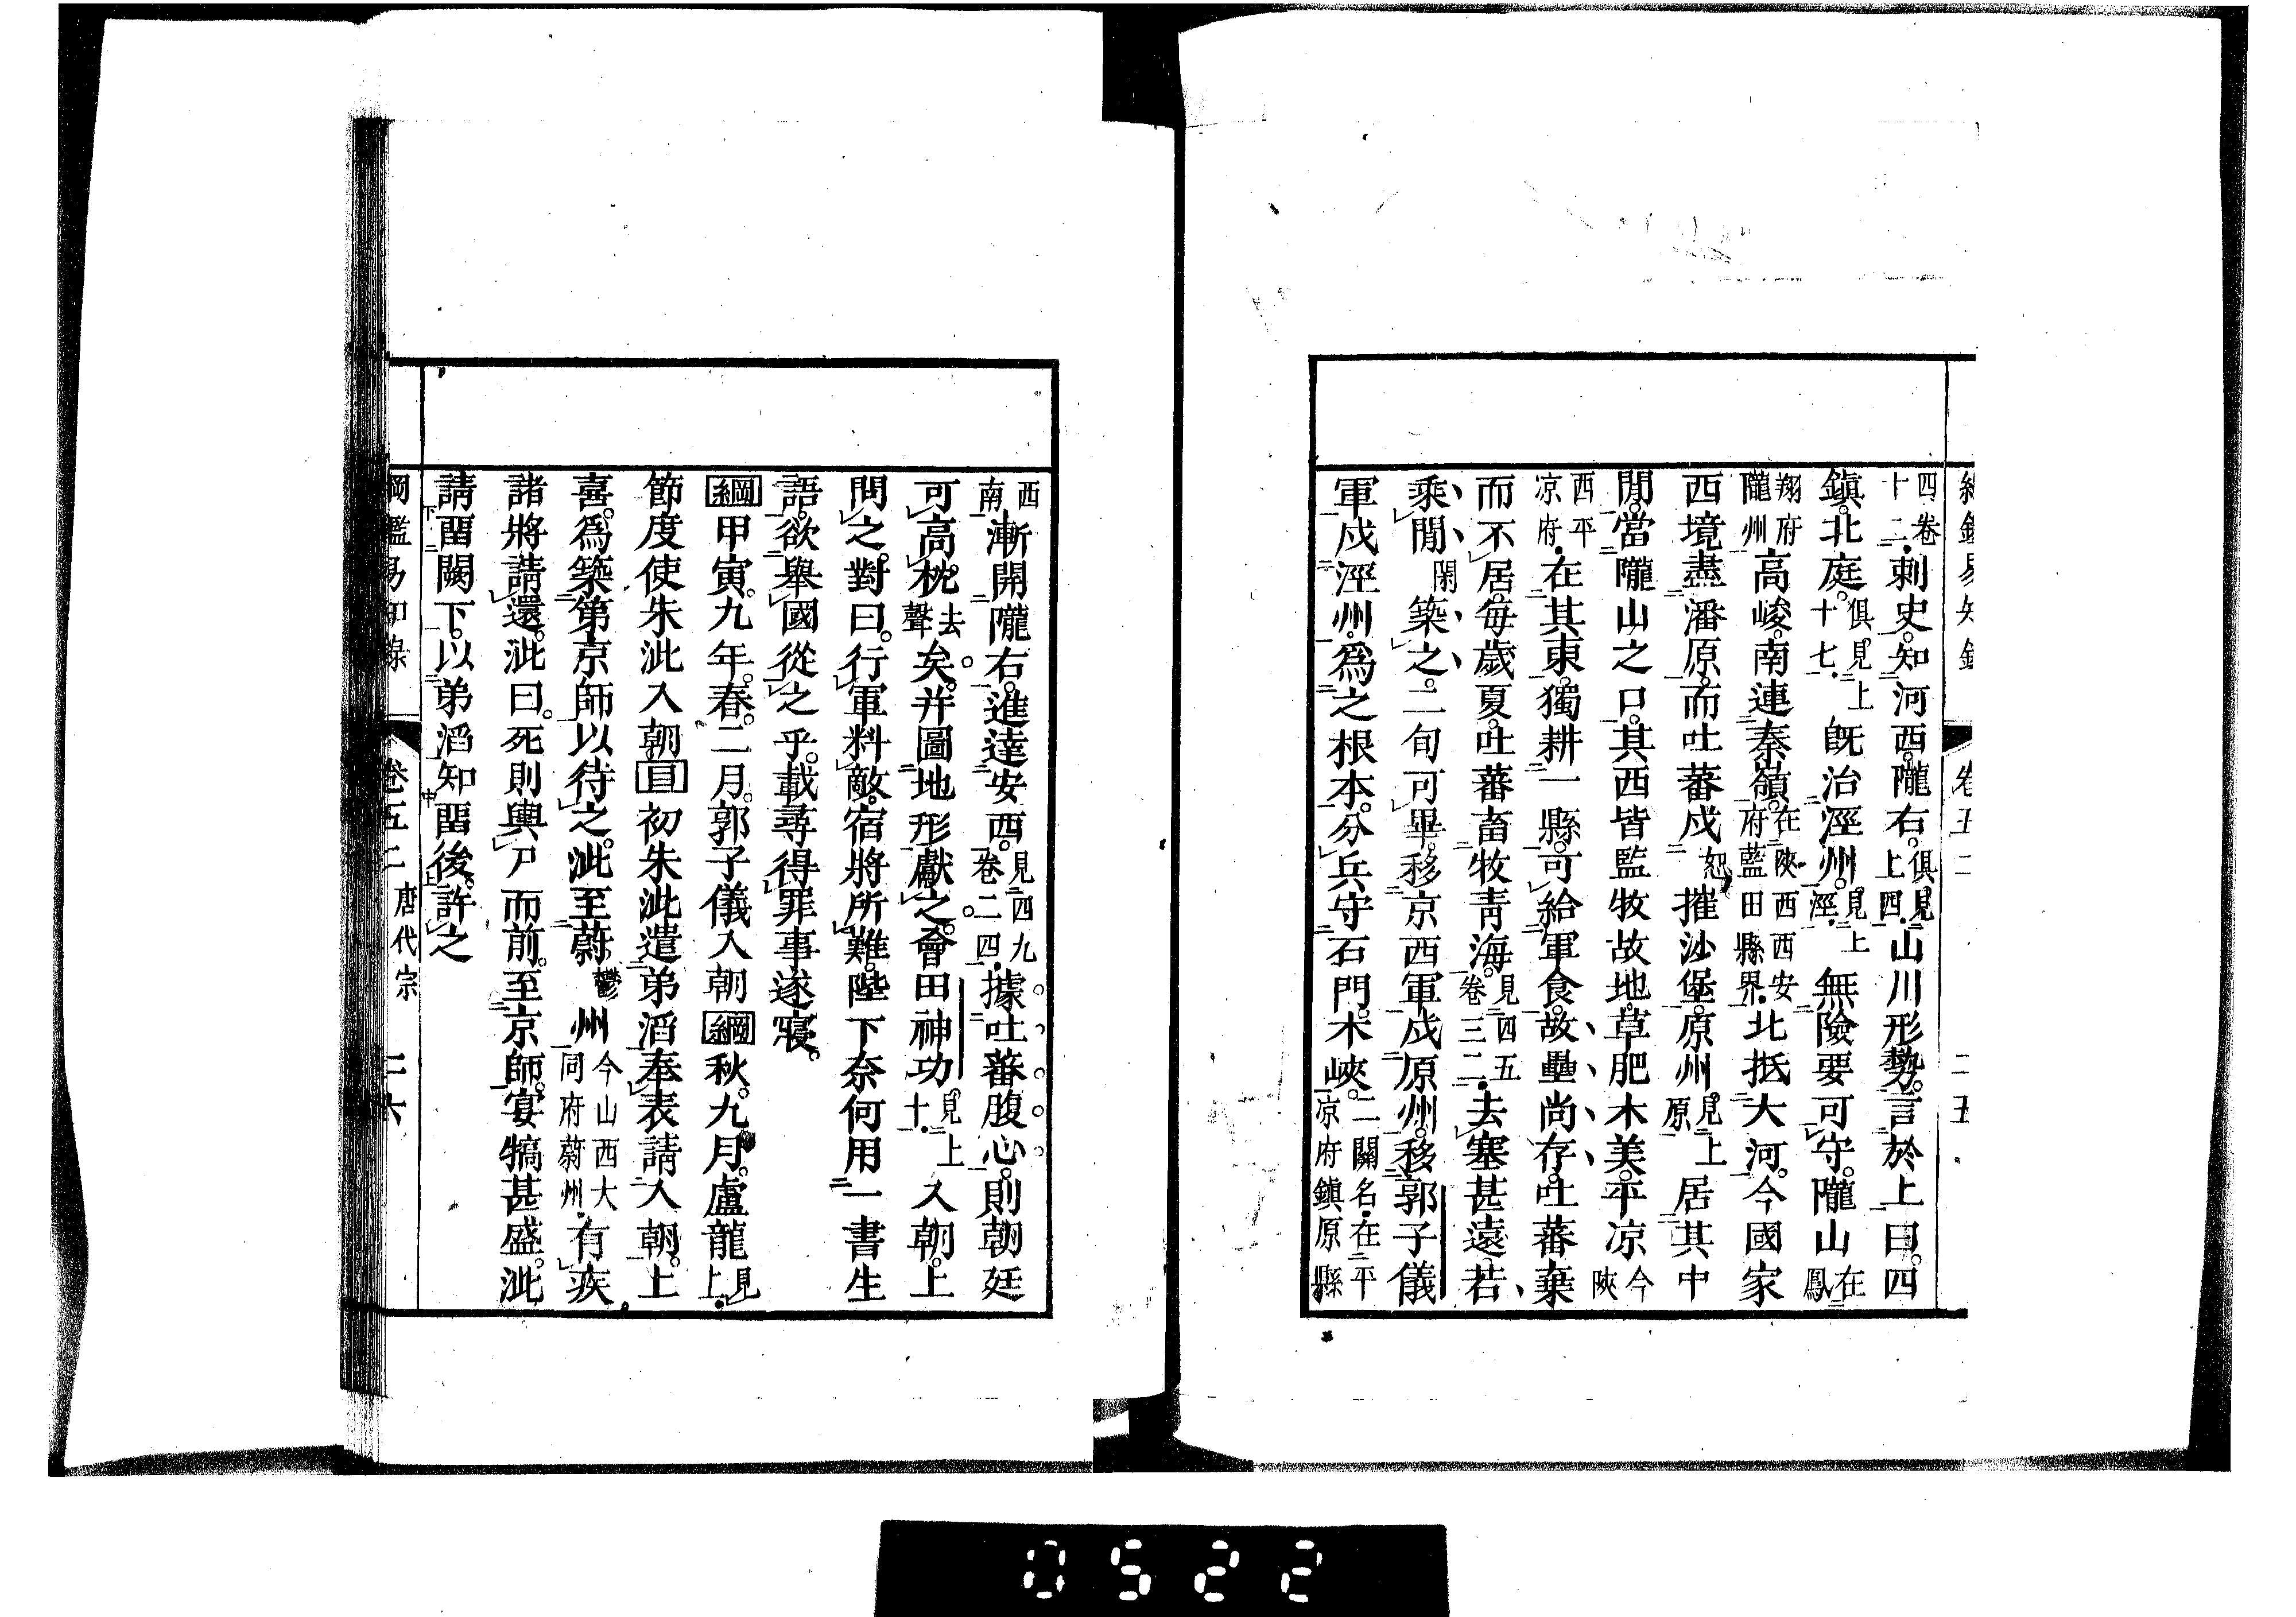 四卷十二刺史。知河西。隴右。俱見上四山川形勢。言於上曰。四
鎮。北庭。俱見上十七旣治涇州。見上涇無險要可守。隴山在鳳
翔府隴州高峻。南連秦嶺。在陝西西安府藍田縣界北抵大河。今國家
西境盡潘原。而吐蕃戍恕摧沙堡。原州見上原居其中
閒。當隴山之口。其西皆監牧故地。草肥木美。平凉今陝
西平凉府在其東。獨耕一縣。可給軍食。故壘尚存。吐蕃棄
而不居。每歲夏。吐蕃畜牧青海。見四五卷三二去塞甚遠。若
乘閒閑築之。二旬可畢。移京西軍戍原州。移郭子儀
軍戍涇州。爲之根本。分兵守石門。木峽。二關名在平凉府鎮原縣
卷五二 二五
西南漸開隴右。進達安西。見四九卷二四據吐蕃腹心。則朝廷
可高枕去聲矣。并圖地形獻之。會田神功。見上十入朝。上
問之。對曰。行軍料敵。宿將所難。陛下奈何用一書生
語。欲舉國從之乎。載尋得罪。事遂寢。
綱甲寅。九年。春。二月。郭子儀入朝綱秋。九月。盧龍見上
節度使朱泚入朝目初朱泚遣弟滔奉表請入朝。上
喜。爲築第京師以待之。泚至蔚鬱州今山西大同府蔚州有疾
諸將請還。泚曰。死則輿尸而前。至京師。宴犒甚盛。泚
請畱闕下。以弟滔知畱後。許之
綱鑑易知錄 卷五二 唐代宗 二六
0522